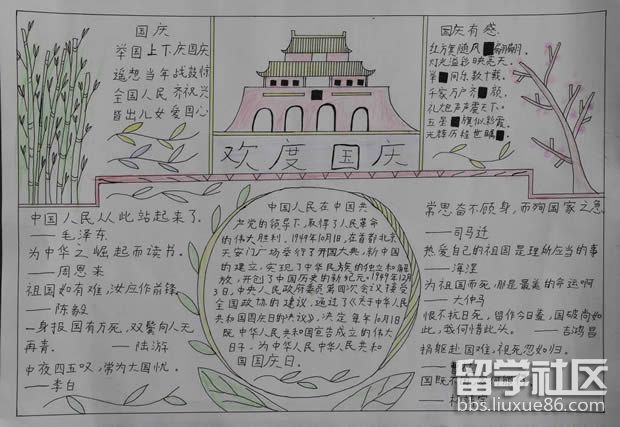 国庆
举国上下庆国庆
遥想当年战鼓惊
全国人民齐祝兴
皆出儿女爱国心
欢度国庆
国庆有感
红旗随风翩翩
灯光溢彩映亮天
举同乐数十载
千家万户齐颜
礼炮声声震天下
五星旗似彩霞
光辉历程世瞩
中国人民从此站起来了.
——毛泽东
为中华之崛起而读书.
——周恩来
祖国如有难,汝应作前锋.
——陈毅
一身报国有万死,双鬓向人无
再青. ——陆游
中夜四五叹,常为大国忧.
——李白
中国人民在中国共
产党的领导下,取得了人民革命
的伟大胜利.1949年10月1日,在首都北京
天安门广场举行了开国大典,新中国
的建立,实现了中华民族的独立和解
放,开创了中国历史的新纪元.1949年12月
3日,中央人民政府委员第四次会议接受
全国政协的建议,通过了《关于中华人民
共和国国庆日的决议》,决定每年10月1日
既中华人民共和国宣告成立的伟大
日子,为中华人民中华人民共和
国国庆日.
常思奋不顾身,而殉国家之急.
——司马迁
热爱自己的祖国是理所应当的事
——海涅
为祖国而死,那是最美的命运啊
——大仲马
恨不抗日死,留作今日羞,国破尚如
此,我何惜此头. ——吉鸿昌
捐躯赴国难,视死忽如归.
国既不
留学社区
bbs.liuxue86.com